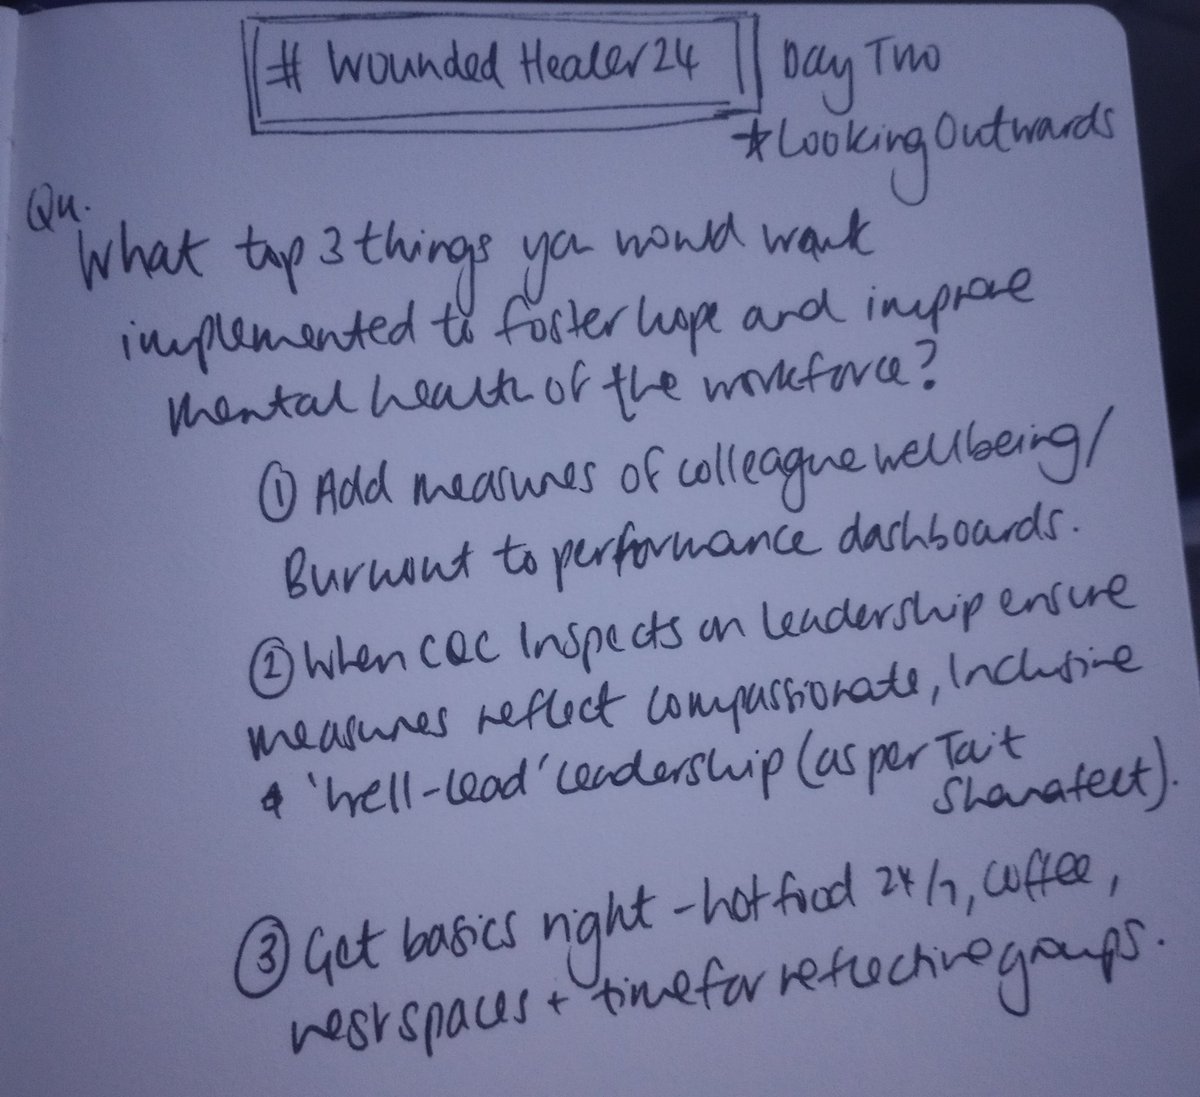 # Wounded Healer 24 Day Two
*Looking Outwards
Qu.
What top 3 things you would want
implemented to foster hope and improve
mental health of the workforce?
① Add measures of colleague wellbeing/
Burnout to performance dashboards.
② When CQC Inspects on leadership ensure
measures reflect compassionate, Inclusive
& 'well-lead' leadership (as per Tait
Shanafelt).
③ Get basics right - hot food 24/7, coffee,
rest spaces + time for reflective groups.